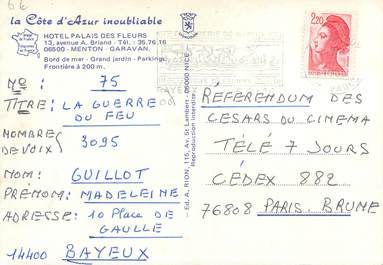 la Côte d'Azur inoubliable
HOTEL PALAIS DES FLEURS
13, avenue A. Briand - Tél. : 35.76.16
06500 - MENTON - GARAVAN.
Bord de mer - Grand jardin - Parking.
Frontière à 200 m.
2,20
Nº : 75
TITRE : LA GUERRE
DU FEU
NOMBRE
DE VOIX 3095
NOM : GUILLOT
PRÉNOM : MADELEINE
ADRESSE : 10 PLACE DE
GAULLE
14400 BAYEUX
Ed. A. RION, 115, Av. St Lambert - 06000 NICE
Reproduction interdite
RÉFERENDUM DES
CESARS DU CINEMA
TÉLÉ 7 JOURS
CÉDEX 882
76808 PARIS. BRUNE